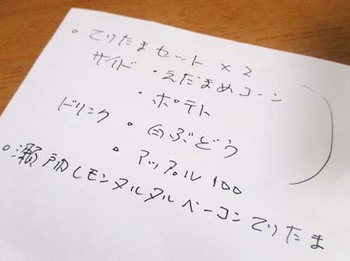 。てりたまセット×2
サイド・えだまめコーン
・ポテト
ドリンク・白ぶどう
・アップル100
。瀬戸内レモンタルタルベーコンてりたま